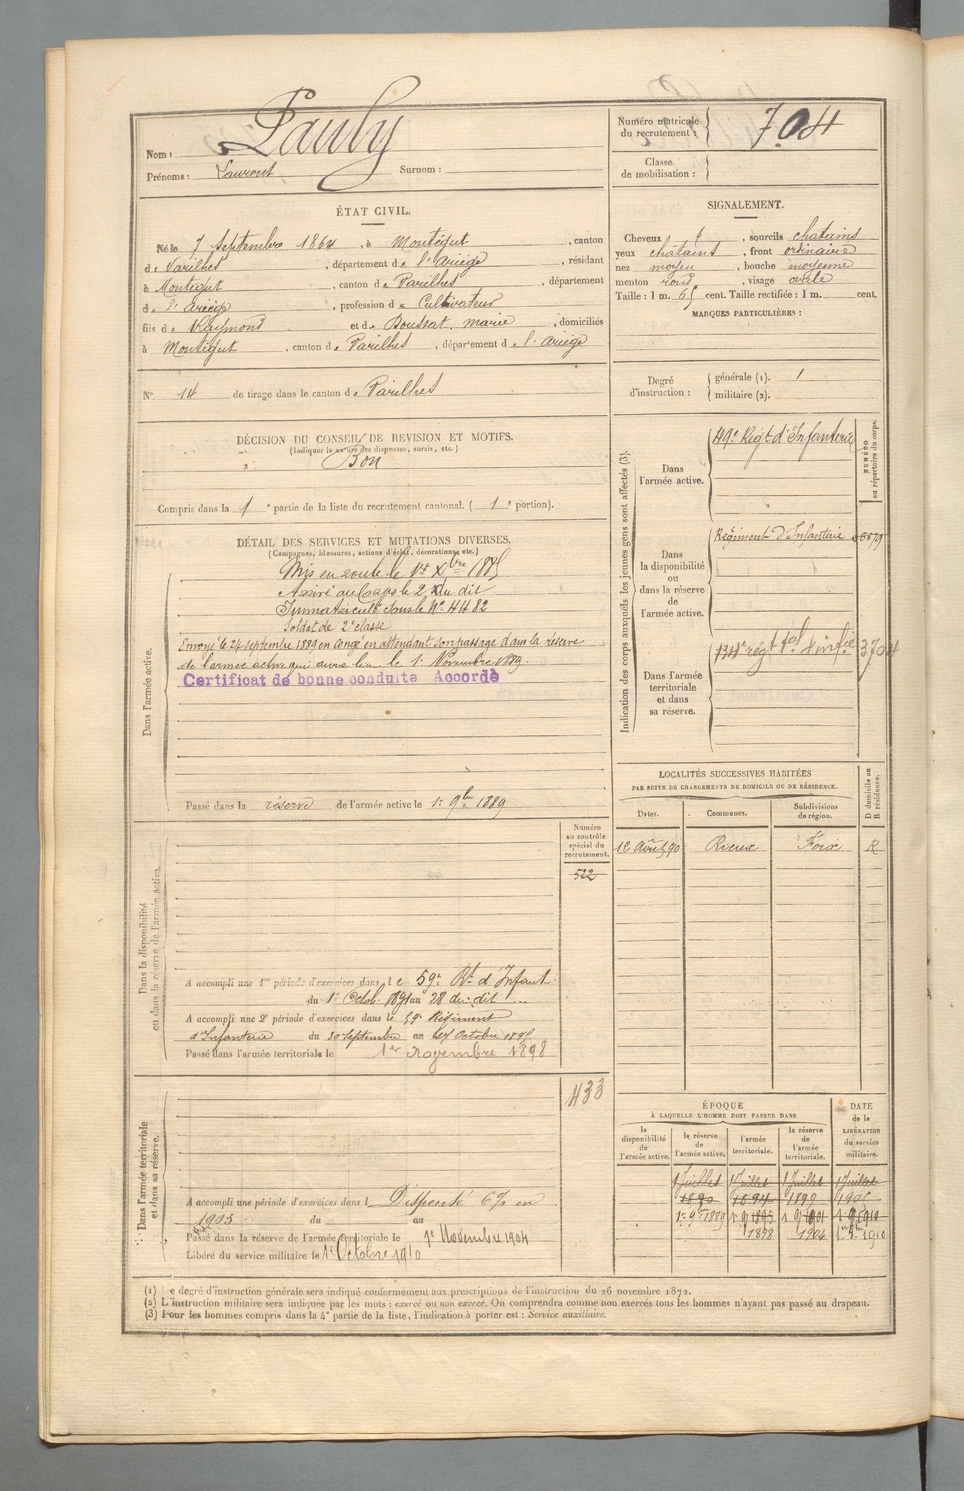 Nom : Pauly
Prénoms : Laurent Surnom :
Numéro matricule du recrutement : 704
Classe de mobilisation :
ÉTAT CIVIL.
Né le 7 Septembre 1864, à Montégut, canton
de Varilhes, département de l'Ariège, résidant
à Montégut, canton de Varilhes, département
de l'Ariège, profession de Cultivateur
fils de Raymond et de Boussat, marie, domiciliés
à Montégut, canton de Varilhes, département de l'Ariège
N° 14 de tirage dans le canton de Varilhes
DÉCISION DU CONSEIL DE REVISION ET MOTIFS.
(Indiquer la nature des dispenses, sursis, etc.)
Bon
Compris dans la 1e partie de la liste du recrutement cantonal. ( 1e portion).
DÉTAIL DES SERVICES ET MUTATIONS DIVERSES.
(Campagnes, blessures, actions d'éclat, décorations, etc.)
Dans l'armée active.
Mis en route le 1er Xbre 1885
Arrivé au Corps le 2 Xdu dit
Immatriculé sous le N° 4482
Soldat de 2e classe
Envoyé le 24 septembre 1889 en congé en attendant son passage dans la réserve
de l'armée active qui aura lieu le 1er Novembre 1889.
Certificat de bonne conduite Accordé
Passé dans la réserve de l'armée active le 1er 9bre 1889
Dans la disponibilité ou dans la réserve de l'armée active.
Numéro au contrôle spécial du recrutement.
522
A accompli une 1re période d'exercices dans le 59e Rt d'Infant.
du 1er Octob. 1891 au 28 du dit
A accompli une 2e période d'exercices dans le 59e Régiment
d'Infanterie du 30 Septembre au 27 Octobre 1895
Passé dans l'armée territoriale le 1er novembre 1898
Dans l'armée territoriale et dans sa réserve.
433
A accompli une période d'exercices dans l Dispensé 6% en
1903 du au
Passé dans la réserve de l'armée territoriale le 1er Novembre 1904
Libéré du service militaire le 1er Octobre 1910
SIGNALEMENT.
Cheveux t, sourcils chatains
yeux chatains, front ordinaire
nez moyen, bouche moyenne
menton rond, visage ovale
Taille : 1 m. 65 cent. Taille rectifiée : 1 m. cent.
MARQUES PARTICULIÈRES :
Degré d'instruction : générale (1). 1
militaire (2).
Indication des corps auxquels les jeunes gens sont affectés (3).
NUMÉRO au répertoire du corps.
Dans l'armée active.
49e Régt d'Infanterie
Dans la disponibilité ou dans la réserve de l'armée active.
Régiment d'Infanterie
Dans l'armée territoriale et dans sa réserve.
régt tal d'infie 3704
LOCALITÉS SUCCESSIVES HABITÉES
PAR SUITE DE CHANGEMENTS DE DOMICILE OU DE RÉSIDENCE.
Dates. Communes. Subdivisions de région. D domicile ou R résidence.
12 Août 90 Rieux Foix R
ÉPOQUE
À LAQUELLE L'HOMME DOIT PASSER DANS
DATE de la LIBÉRATION du service militaire.
la disponibilité de l'armée active. la réserve de l'armée active. l'armée territoriale. la réserve de l'armée territoriale.
1 Juillet 1 Juillet 1 Juillet 1 Juillet
1890 1894 1899 1905
1er 9bre 1889 1r 9 1895 1r 9 1901 1r 9 1910
1898 1904 1910
(1) Le degré d'instruction générale sera indiqué conformément aux prescriptions de l'instruction du 26 novembre 1872.
(2) L'instruction militaire sera indiquée par les mots : exercé ou non exercé. On comprendra comme non exercés tous les hommes n'ayant pas passé au drapeau.
(3) Pour les hommes compris dans la 4e partie de la liste, l'indication à porter est : Service auxiliaire.